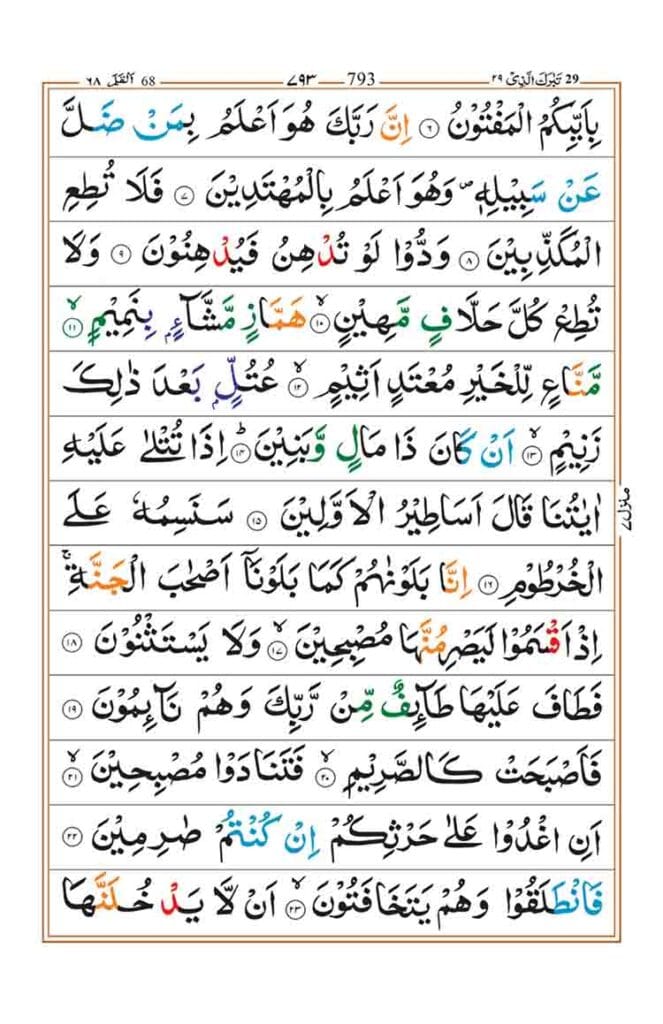 29 تَبٰرَكَ الَّذِیْ ٢٩ 793 ٧٩٣ 68 اَلْقَلَم ٦٨
بِاَیِّكُمُ الْمَفْتُوْنُ ٦ اِنَّ رَبَّكَ هُوَ اَعْلَمُ بِمَنْ ضَلَّ
عَنْ سَبِیْلِهٖ ۪ وَهُوَ اَعْلَمُ بِالْمُهْتَدِیْنَ ٧ فَلَا تُطِعِ
الْمُكَذِّبِیْنَ ٨ وَدُّوْا لَوْ تُدْهِنُ فَیُدْهِنُوْنَ ٩ وَلَا
تُطِعْ كُلَّ حَلَّافٍ مَّهِیْنٍ ۙ ١٠ هَمَّازٍ مَّشَّآءٍۭ بِنَمِیْمٍ ۙ ١١
مَّنَّاعٍ لِّلْخَیْرِ مُعْتَدٍ اَثِیْمٍ ۙ ١٢ عُتُلٍّۭ بَعْدَ ذٰلِكَ
زَنِیْمٍ ۙ ١٣ اَنْ كَانَ ذَا مَالٍ وَّبَنِیْنَ ؕ ١٤ اِذَا تُتْلٰی عَلَیْهِ
اٰیٰتُنَا قَالَ اَسَاطِیْرُ الْاَوَّلِیْنَ ١٥ سَنَسِمُهٗ عَلَی
الْخُرْطُوْمِ ١٦ اِنَّا بَلَوْنٰهُمْ كَمَا بَلَوْنَاۤ اَصْحٰبَ الْجَنَّةِ ۚ
اِذْ اَقْسَمُوْا لَیَصْرِمُنَّهَا مُصْبِحِیْنَ ۙ ١٧ وَلَا یَسْتَثْنُوْنَ ١٨
فَطَافَ عَلَیْهَا طَآئِفٌ مِّنْ رَّبِّكَ وَهُمْ نَآئِمُوْنَ ١٩
فَاَصْبَحَتْ كَالصَّرِیْمِ ۙ ٢٠ فَتَنَادَوْا مُصْبِحِیْنَ ۙ ٢١
اَنِ اغْدُوْا عَلٰی حَرْثِكُمْ اِنْ كُنْتُمْ صٰرِمِیْنَ ٢٢
فَانْطَلَقُوْا وَهُمْ یَتَخَافَتُوْنَ ۙ ٢٣ اَنْ لَّا یَدْخُلَنَّهَا
منزل ٧